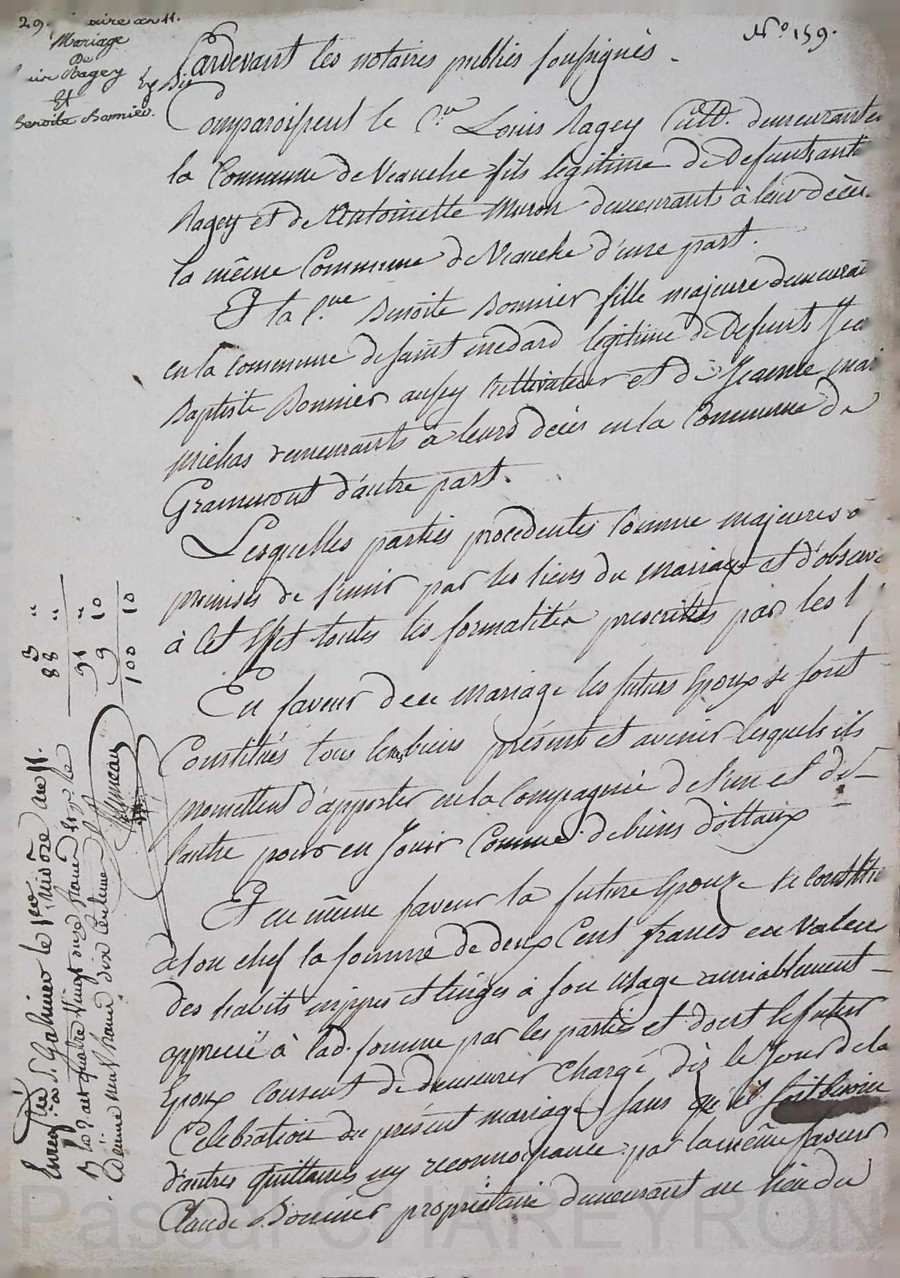 29. aire an 11.
Mariage
De
Ragey
Et
Benoite Bonnier.
Exp. Dit
N.o 159.
Pardevant les notaires publics soussignés.
Comparoissent le C.en Louis Ragey Cult. demeurant en
la Commune de Veauche fils legitime de Defunts ant.
Ragey et de Antoinette Muron demeurants à leur décès
la même Commune de Veauche d'une part.
Et la C.ne Benoite Bonnier fille majeure demeurant
en la commune de saint medard legitime de Defunts Jea
Baptiste Bonnier aussy Cultivateur et de Jeanne mar
demeurants à leurs décès en la Commune de
Grammont d'autre part.
Lesquelles parties procedentes comme majeures o
promises de s'unir par les liens du mariage et d'observe
à cet effet toutes les formalités prescrittes par les l
En faveur de ce mariage les futurs Epoux se sont
Constitués tous leurs biens présents et avenir lesquels ils
promettent d'apporter en la Compagnie de l'un et de
l'autre pour en Jouir Comme de biens dottaux
Et en même faveur la future Epouze se constitue
de son chef la somme de deux Cent francs en valeur
des habits nippes et linges a son usage amiablement
apprecié à lad. somme par les parties et dont le futur
Epoux consent de demeurer Chargé dès le Jour de la
Celebration du présent mariage sans qu'il soit besoin
d'autres quittances ny reconnoissance par la même faveur
Claude Bonnier propriétaire demeurant au lieu du
3 "
88 "
91 "
9 10
100 10
Enreg.tré à S.t Galmier le 1.er nivôse an 11.
R la 9 art quatre vingt onze francs
dixieme neuf francs dix centimes
Pascal CHAREYRON